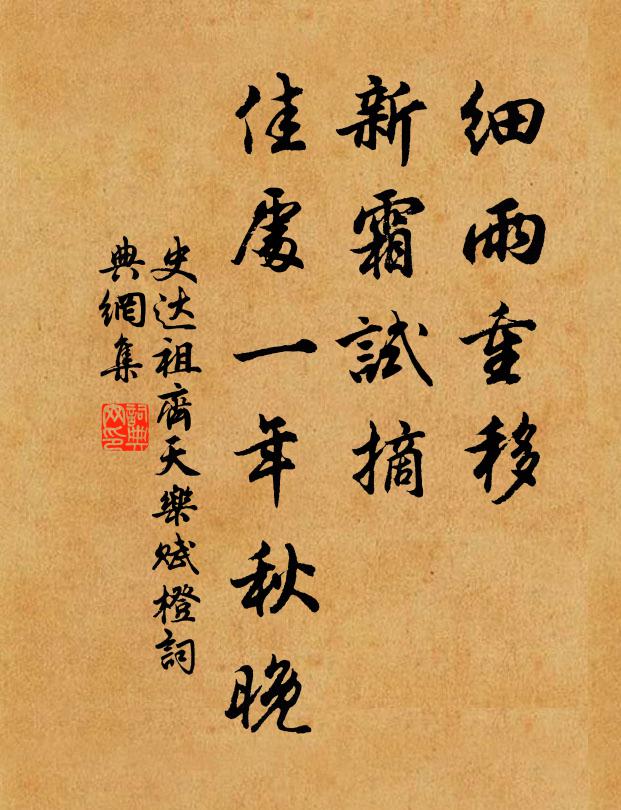 細雨重移
新霜試摘
佳處一年秋晚
史达祖齊天樂賦橙詞
典網集
詞典
网印